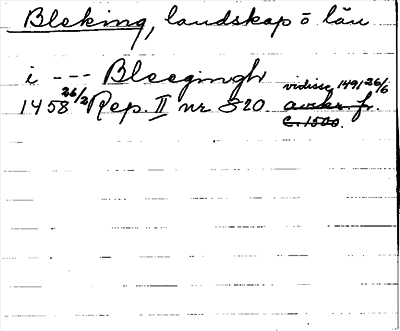 Bleking, landskap o län
i --- Bleegingh
1458 26/2 Rep. II nr 820. vidisse 1491 26/6
avskr. fr.
c. 1500.